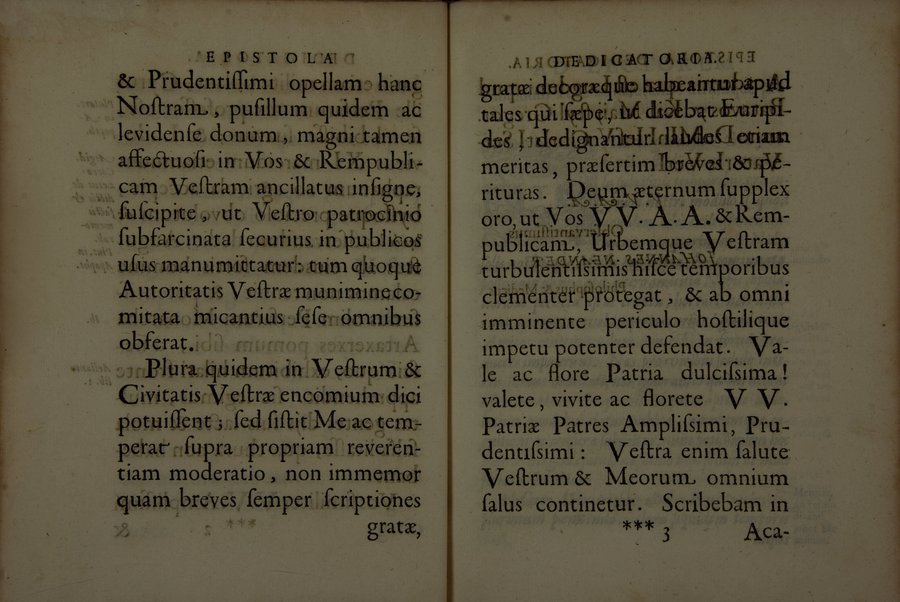 EPISTOLA
& Prudentiſſimi opellam hanc
Noſtram, puſillum quidem ac
levidenſe donum, magni tamen
affectuoſi in Vos & Rempubli-
cam Veſtram ancillatus inſigne,
ſuſcipite, ut Veſtro patrocinio
ſubfarcinata ſecurius in publicos
uſus manumittatur: tum quoque
Autoritatis Veſtræ munimine co-
mitata micantius ſeſe omnibus
obferat.
Plura quidem in Veſtrum &
Civitatis Veſtræ encomium dici
potuiſſent; ſed ſiſtit Me ac tem-
perat ſupra propriam reveren-
tiam moderatio, non immemor
quam breves ſemper ſcriptiones
gratæ,
DEDICATORIA.
gratæ decoræque habeantur apud
tales qui ſæpe, ut dicebat Euripi-
des, dedignantur laudes etiam
meritas, præſertim breves & pe-
rituras. Deum æternum ſupplex
oro, ut Vos VV. A. A. & Rem-
publicam, Urbemque Veſtram
turbulentiſſimis hiſce temporibus
clementer protegat, & ab omni
imminente periculo hoſtilique
impetu potenter defendat. Va-
le ac flore Patria dulciſſima!
valete, vivite ac florete VV.
Patriæ Patres Ampliſſimi, Pru-
dentiſſimi: Veſtra enim ſalute
Veſtrum & Meorum omnium
ſalus continetur. Scribebam in
*** 3 Aca-